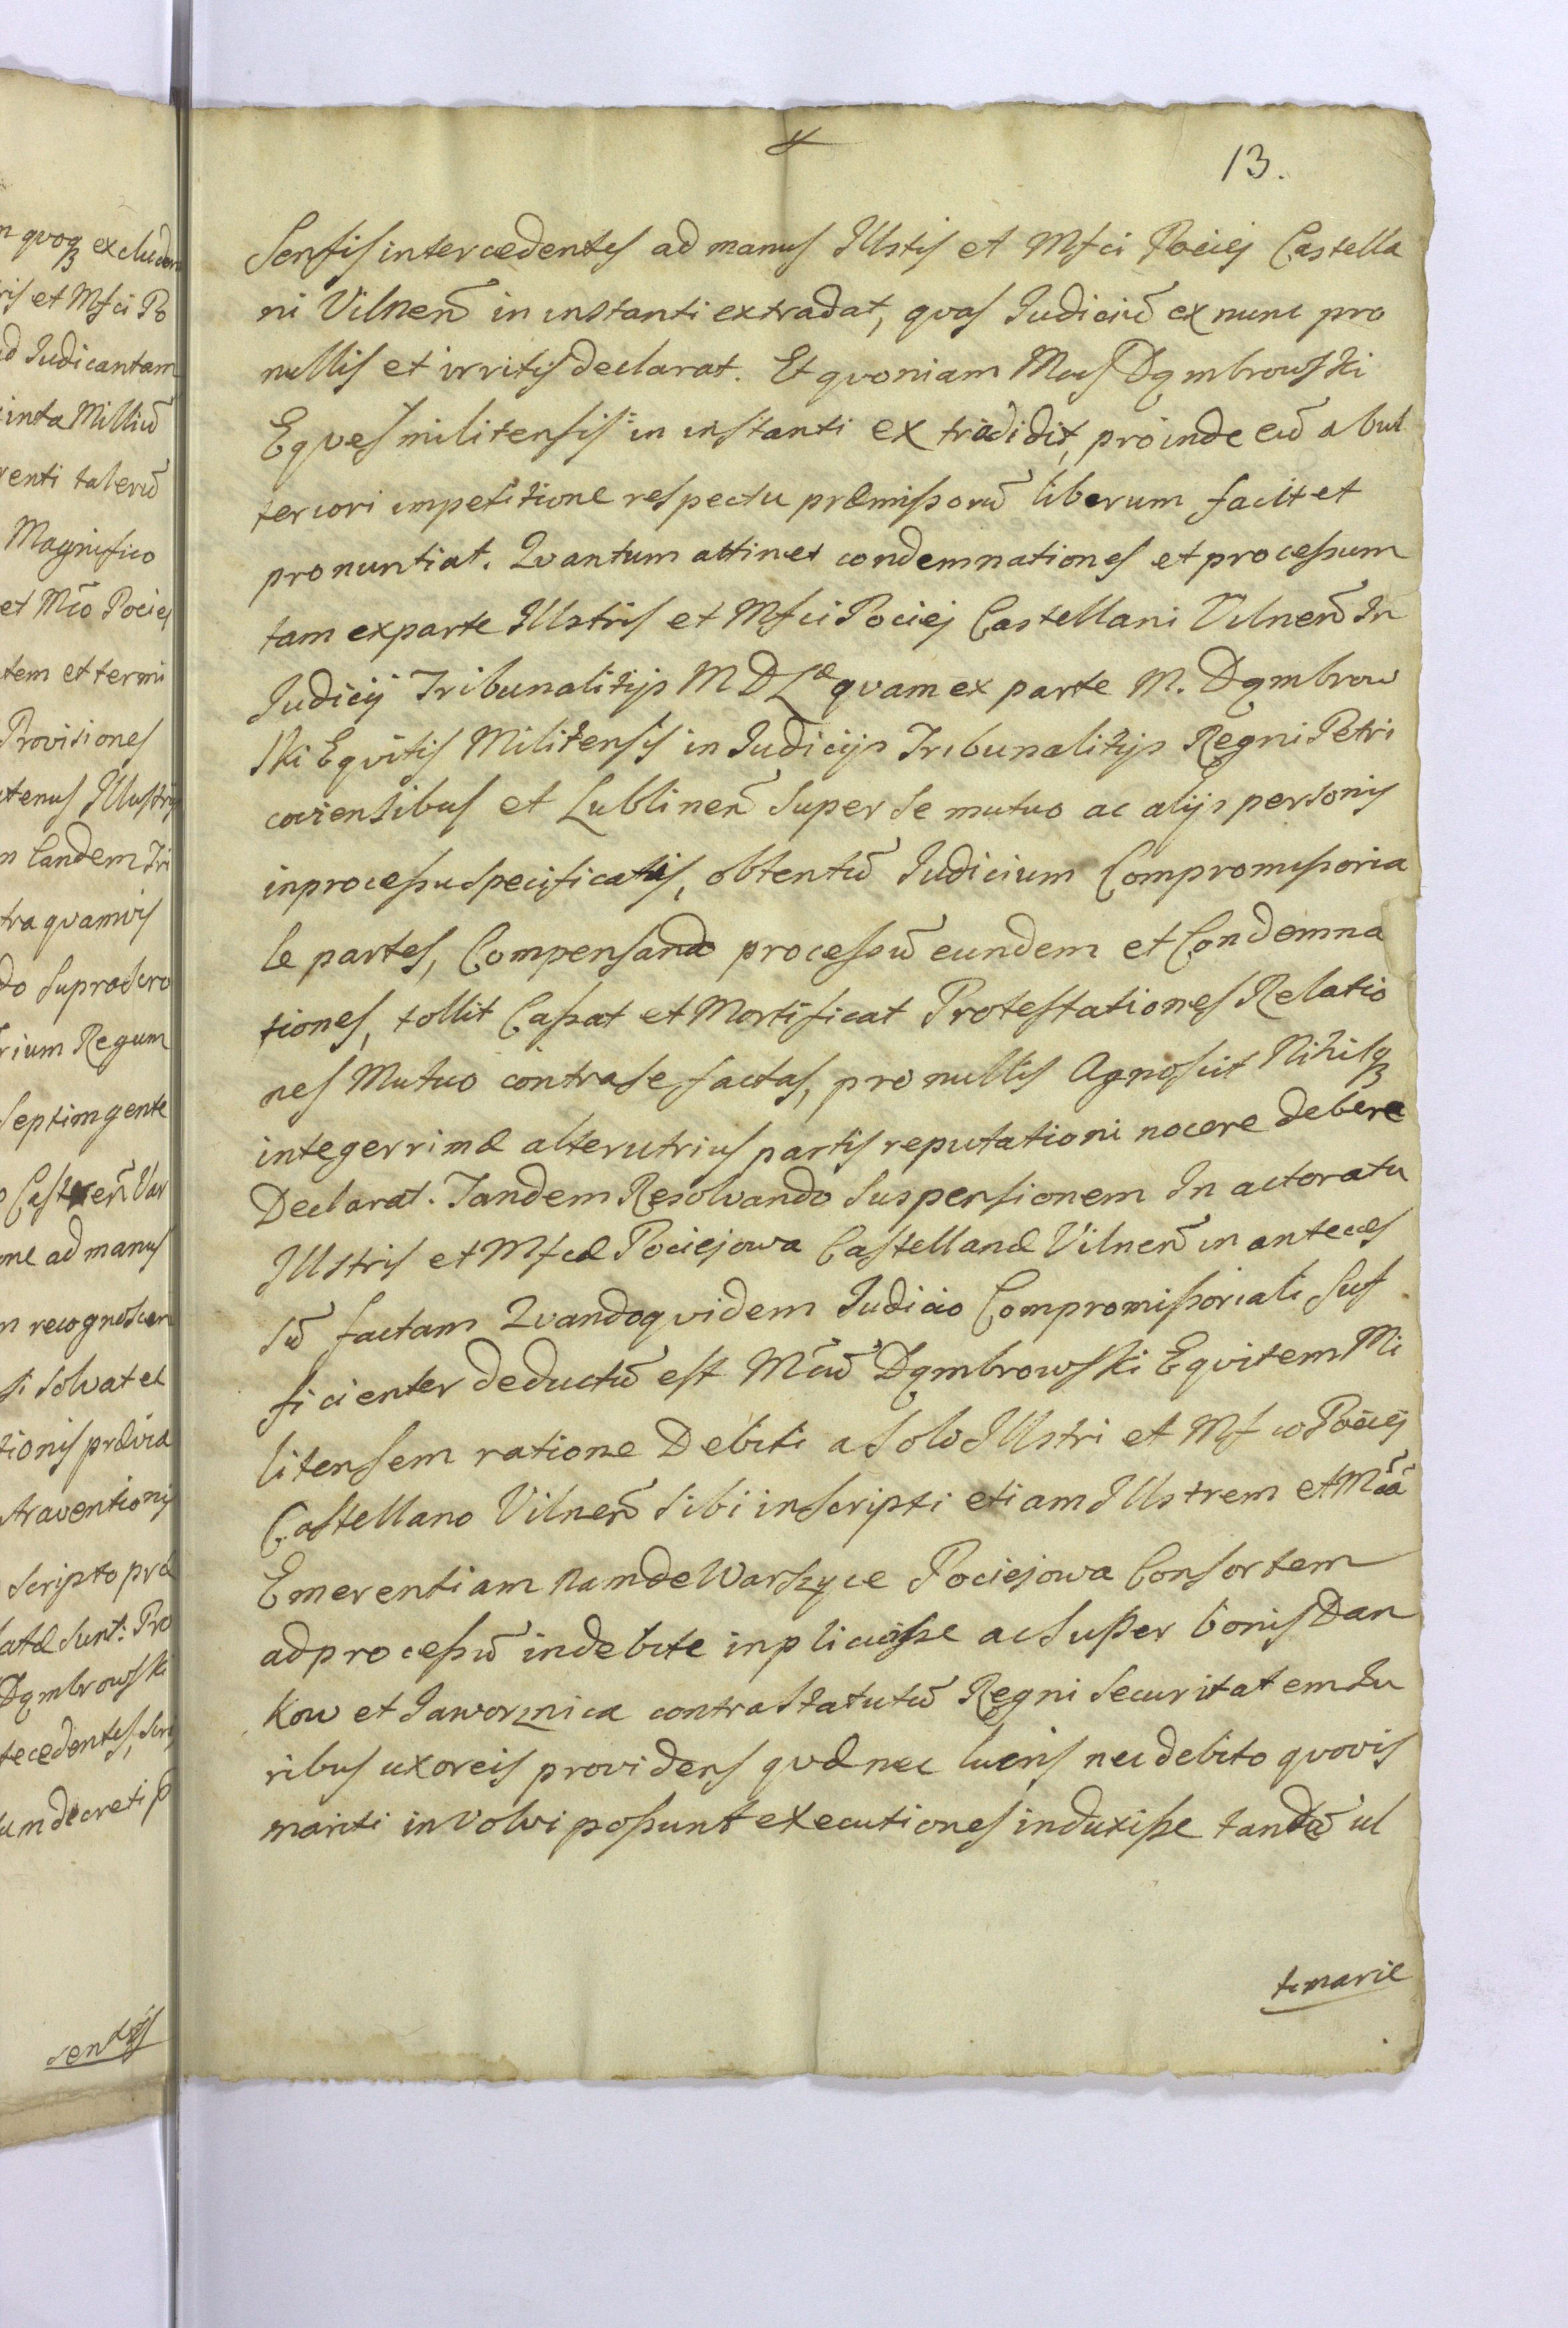 13.
n quoqꝫ excluden
ris et Mfci Po
d Judicantam
inta Milliũ
renti talerũ
Magnifico
et Mc̃o Pociej
tem et termi
Provisiones
tenus Illustris
n tandem Tri
tra quamvis
do suprascro
rium Regum
Septimgente
o Castreñ Var
one ad manus
n recognoscen
si solvat et
tionis prævia
traventionis
Scripto præ
latæ sunt: Pro
Dqmbrowski
tecedentes, scri
um decreti p
Sensis intercedentes ad manus Illstis et Mfci Pociej Castella
ni Vilneñ in instanti extradat, quas Judiciũ ex nunc pro
nullis et irritis declarat. Et quoniam Mcus Dqmbrowski
Eques militensis in instanti extradidit, proinde eũ ab ul
teriori impetitione respectu præmissorũ liberum facit et
pronuntiat. Quantum attinet condemnationes et processum
tam ex parte Illstris et Mfci Pociej Castellani Vilneñ In
Judicij Tribunalitijs M D Læ quam ex parte M. Dqmbrow
ski Equitis Militensis in Judicijs Tribunalitijs Regni Petri
coviensibus et Lublineñ super se mutuo ac alijs personis
in processu specificatis, obtentũ Judicium Compromissoria
le partes, Compensando processũ eundem et Condemna
tiones, tollit Cassat et Mortificat Protestationes Relatio
nes Mutuo contra se factas, pro nullis Agnoscit Nihilqꝫ
integerrimæ alterutrius partis reputationi nocere debere
Declarat. Tandem Resolvando suspensionem In actoratu
Illstris et Mfcæ Pociejowa Castellanæ Vilneñ in anteces
sũ factam Quandoquidem Judicio Compromissoriali suf
ficienter deductũ est Mcũ Dqmbrowski Equitem Mi
litensem ratione Debiti a solo Illstri et Mfco Pociej
Castellano Vilneñ sibi inscripti etiam Illstrem et Mcã
Emerentiam Nam de Warszyce Pociejowa Consortem
ad processũ indebite inplicuisse ac super bonis Dan
kow et Jaworznica contra Statutũ Regni securitatem Ju
ribus uxoreis providens quæ nec lucris nec debito quovis
mariti involvi possunt executiones induxisse tandẽ ul
sensis
timarie